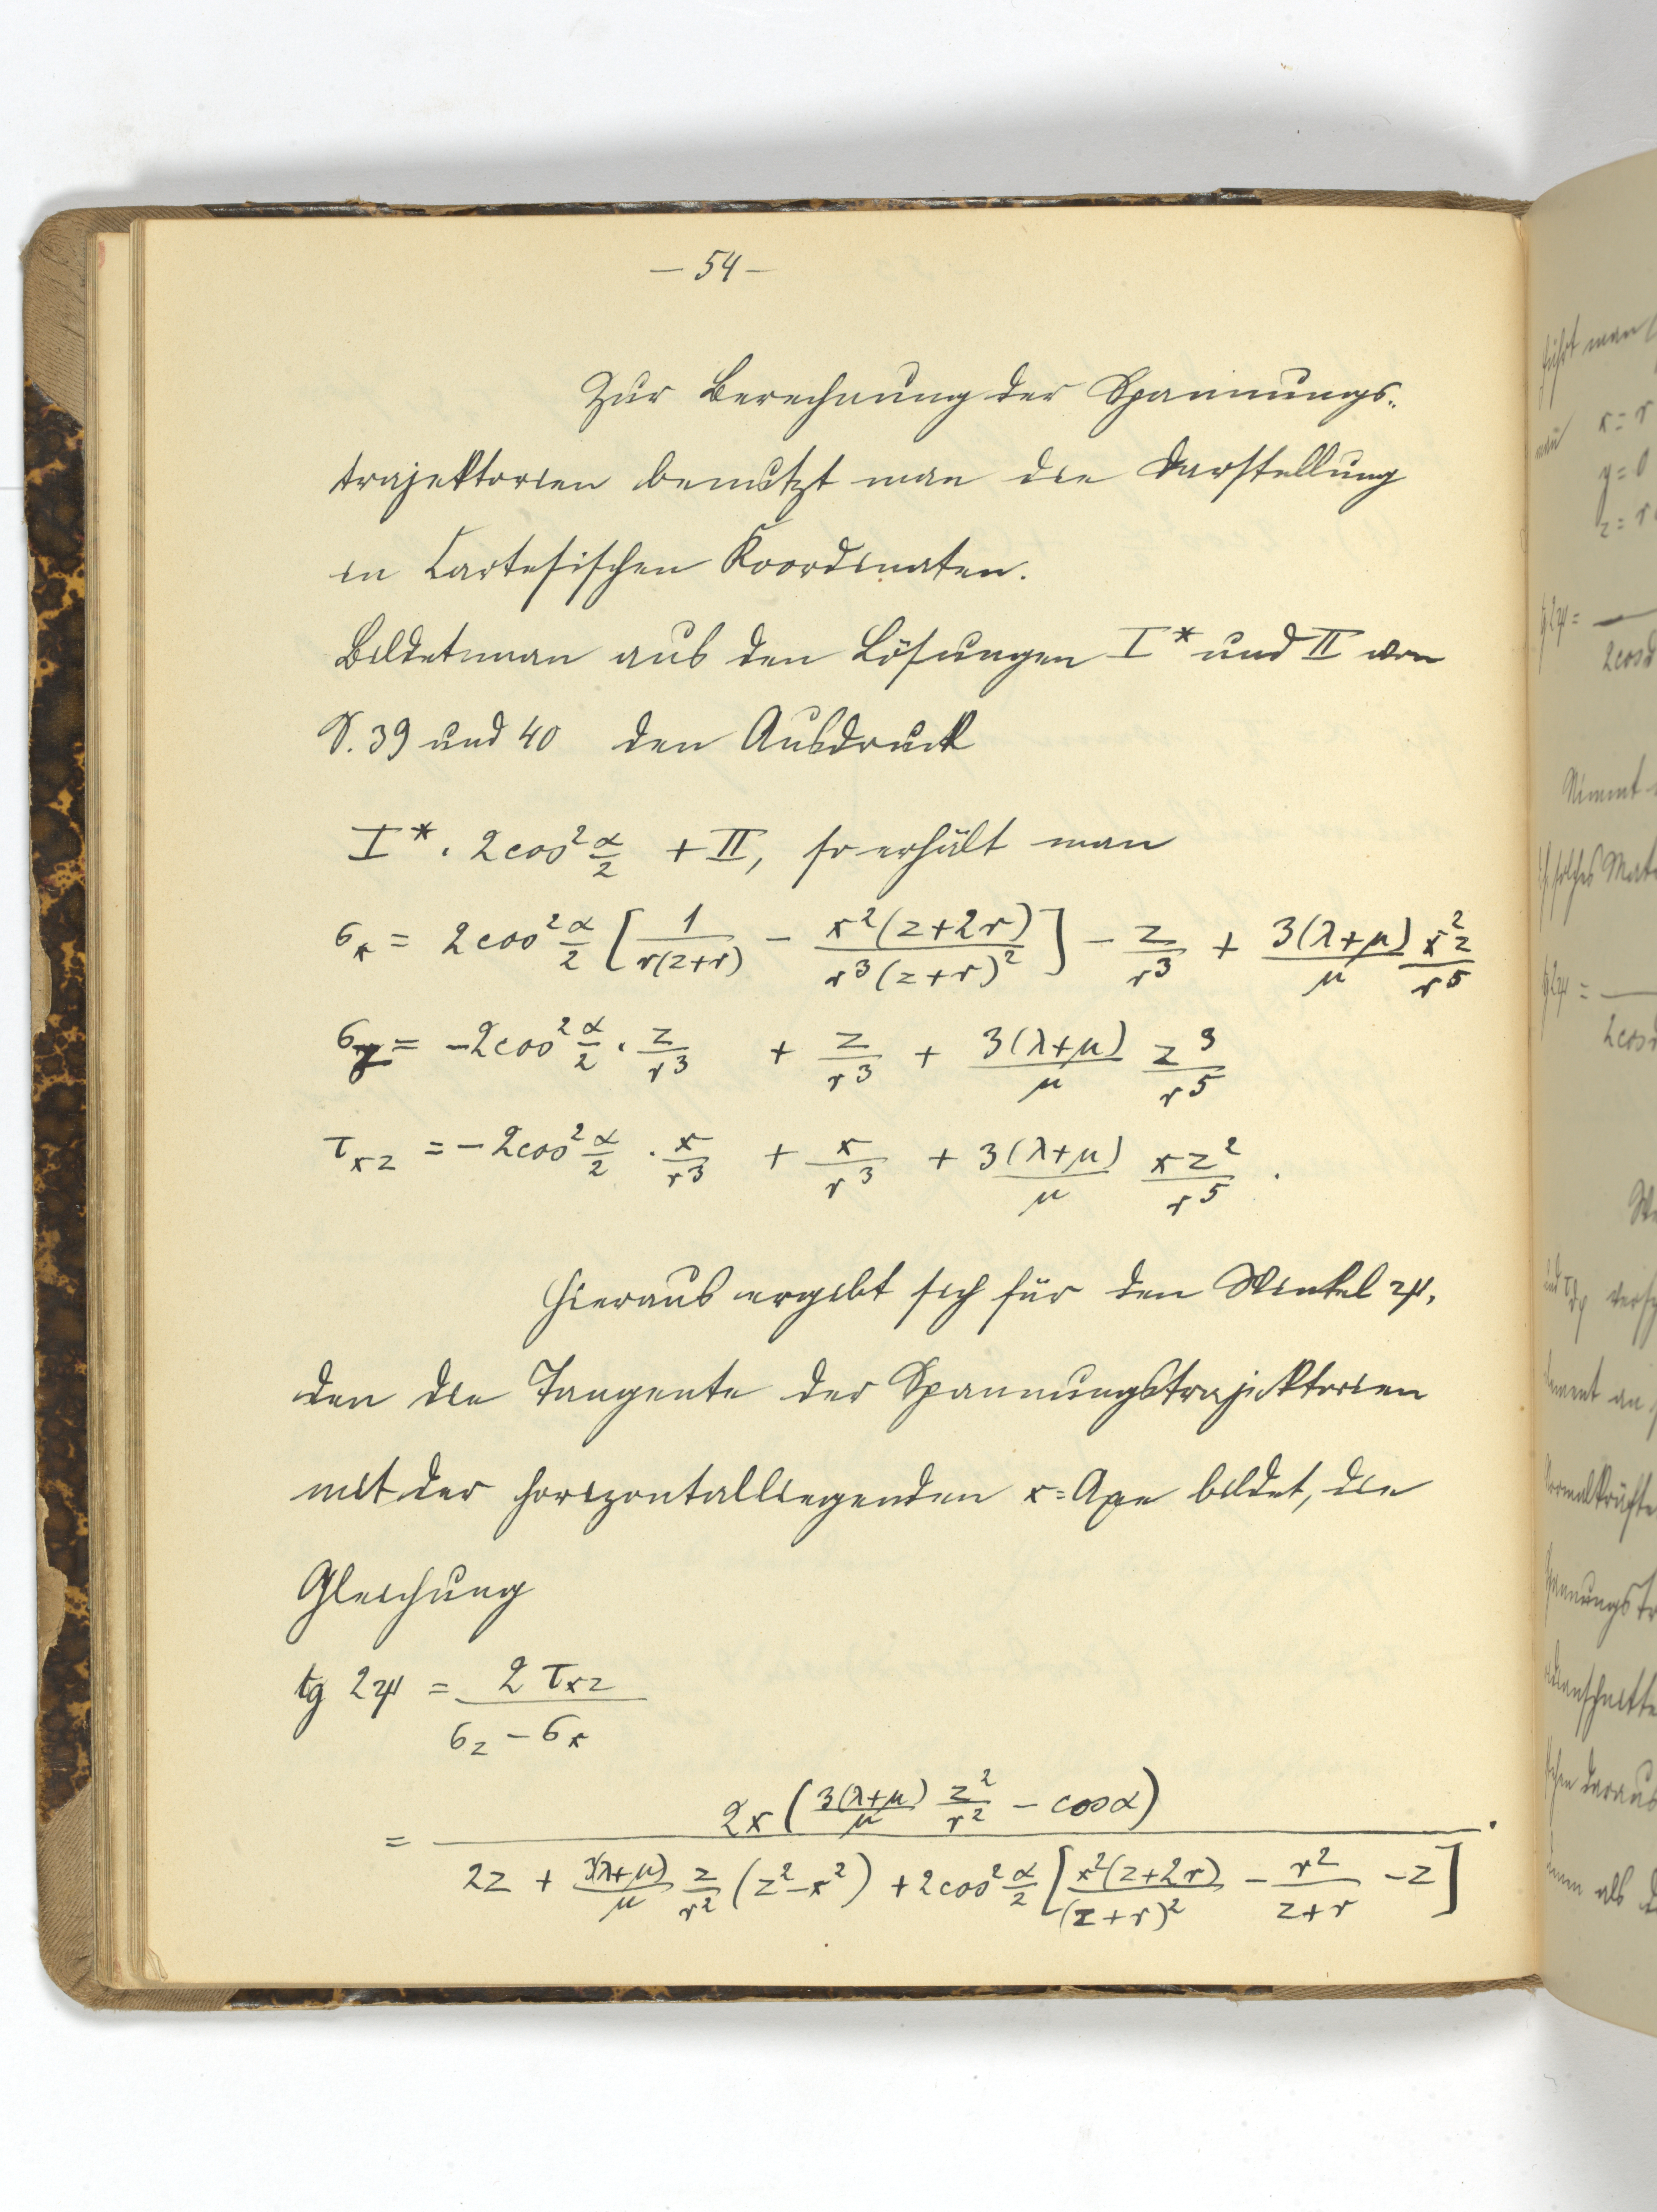 – 54 –
Zur Berechnung der Spannungs-
trajektorien benutzt man die Darstellung
in Cartesischen Koordinaten.
Bildet man aus den Lösungen I* und II von
S. 39 und 40 den Ausdruck
I* · 2cos² α/2 + II, so erhält man
σx = 2cos² α/2 [1/(r(z+r)) − x²(z+2r)/(r³(z+r)²)] − z/r³ + 3(λ+μ)/μ x²z/r⁵
σz = −2cos² α/2 · z/r³ + z/r³ + 3(λ+μ)/μ z³/r⁵
τxz = −2cos² α/2 · x/r³ + x/r³ + 3(λ+μ)/μ xz²/r⁵ .
Hieraus ergibt sich für den Winkel ψ,
den die Tangente der Spannungstrajektorien
mit der horizontalliegenden x-Axe bildet, die
Gleichung
tg 2ψ = 2τxz / (σz − σx)
= 2x(3(λ+μ)/μ z²/r² − cosα) / (2z + 3(λ+μ)/μ z/r² (z²−x²) + 2cos² α/2 [x²(z+2r)/(z+r)² − r²/(z+r) − z]) .
führt man
x = r
y = 0
z = r
tg 2ψ =
2cosα
Nimmt
solches
tg 2ψ =
2cosα